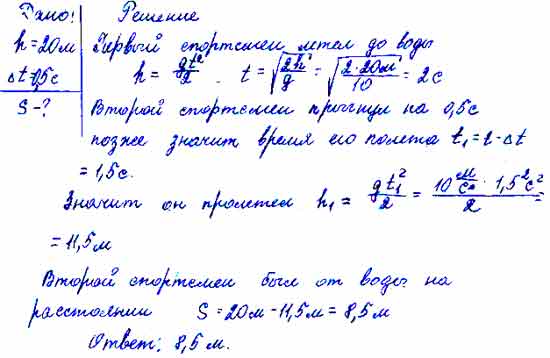 Дано: Решение
h = 20м Первый спортсмен летел до воды
Δt=0,5с h = gt²/2 t = √(2h/g) = √(2·20м/10) = 2с
S - ? Второй спортсмен прыгнул на 0,5с
позже значит время его полета t₁ = t - Δt
= 1,5с.
Значит он пролетел h₁ = gt₁²/2 = 10 м/с² · 1,5²с²/2 =
= 11,5м
Второй спортсмен был от воды на
расстоянии S = 20м - 11,5м = 8,5м
Ответ: 8,5 м.